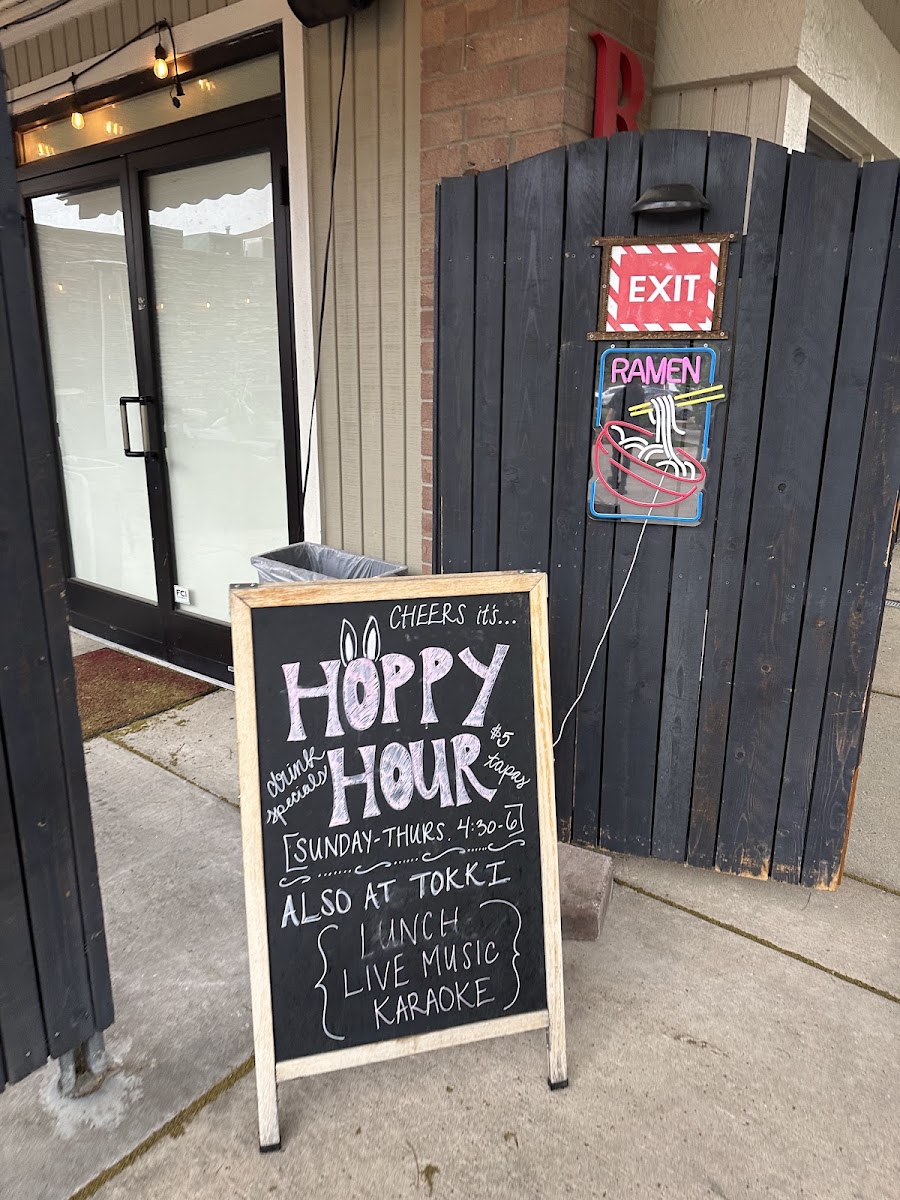 R
EXIT
RAMEN
FCI
CHEERS it's...
HOPPY
HOUR
drink
specials
$5
tapas
[SUNDAY-THURS. 4:30-6]
ALSO AT TOKKI
LUNCH
LIVE MUSIC
KARAOKE